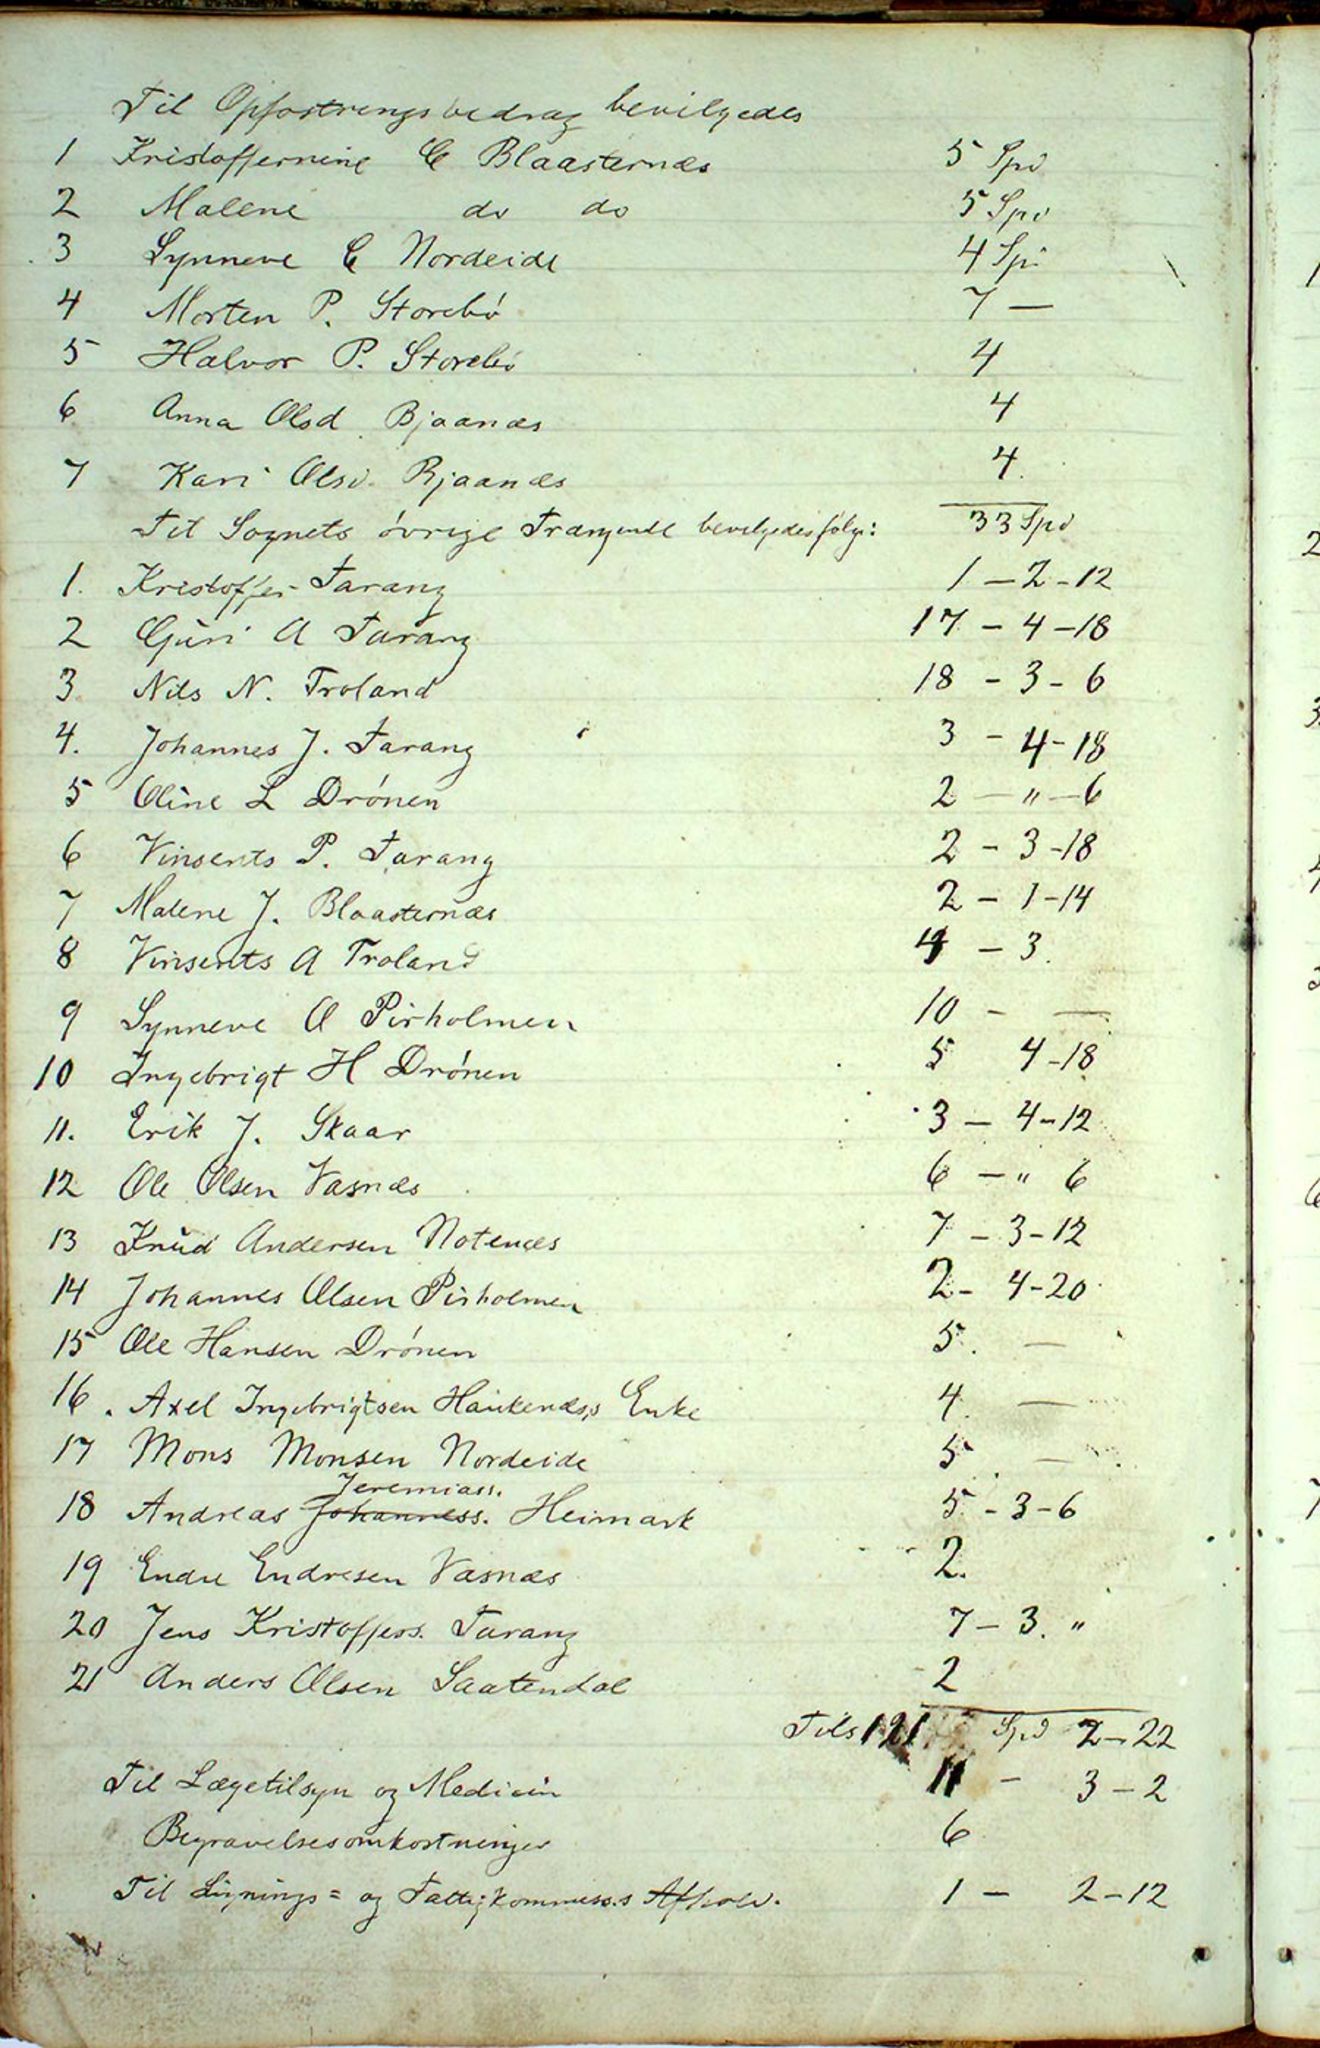 Til Opfostringsbedrag bevilgedes
1 Kristoffernine C Blaasternæs 5 Spd
2 Malene do do 5 Spd
3 Synneve C Nordeide 4 Spd
4 Morten P. Storebö 7 —
5 Halvor P. Storebö 4
6 Anna Olsd Bjaanæs 4
7 Kari Olsd. Bjaanæs 4.
Til Sognets övrige Trængende bevilgedes følg: 33 Spd
1. Kristoffer Tarang 1 — 2 - 12
2 Guri A Tarang 17 - 4 - 18
3 Nils N. Troland 18 - 3 - 6
4. Johannes J. Tarang 3 - 4 - 18
5 Oline L Drönen 2 — " — 6
6 Vinsents P. Tarang 2 - 3 - 18
7 Malene J. Blaasternæs 2 - 1 - 14
8 Vinsents A Troland 4 - 3.
9 Synneve O Pirholmen 10 - —
10 Ingebrigt H Drönen 5 4 - 18
11. Erik J. Skaar 3 — 4 - 12
12 Ole Olsen Vasnæs 6 — " 6
13 Knud Andersen Notenæs 7 - 3 - 12
14 Johannes Olsen Pirholmen 2 - 4 - 20
15 Ole Hansen Drönen 5. —
16. Axel Ingebrigtsen Haukenæs's Enke 4 —
17 Mons Monsen Nordeide 5 —
Jeremiass.
18 Andreas Johanness. Heimark 5 - 3 - 6
19 Endre Endresen Vasnæs 2.
20 Jens Kristoffers. Tarang 7 - 3. "
21 Anders Olsen Saatendal 2
Tils 121 Spd 2 - 22
Til Lægetilsyn og Medicin 11 - 3 - 2
Begravelsesomkostninger 6
Til Lignings= og Fattigkommiss.s Afhold. 1 — 2 - 12